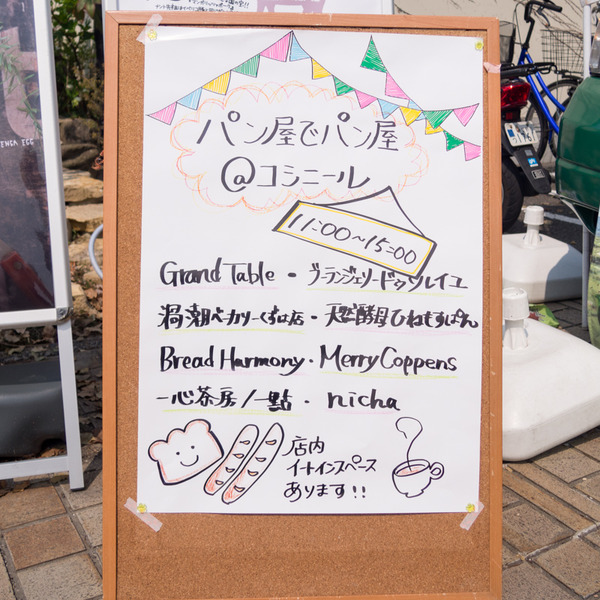 パン屋でパン屋
@コシニール
11:00〜15:00
Grand Table・ブーランジェリードゥソレイユ
渦潮ベーカリーくずは店・天然酵母ひねもすぱん
Bread Harmony・Merry Coppens
一心茶房/一點・nicha
店内
イートインスペース
あります!!